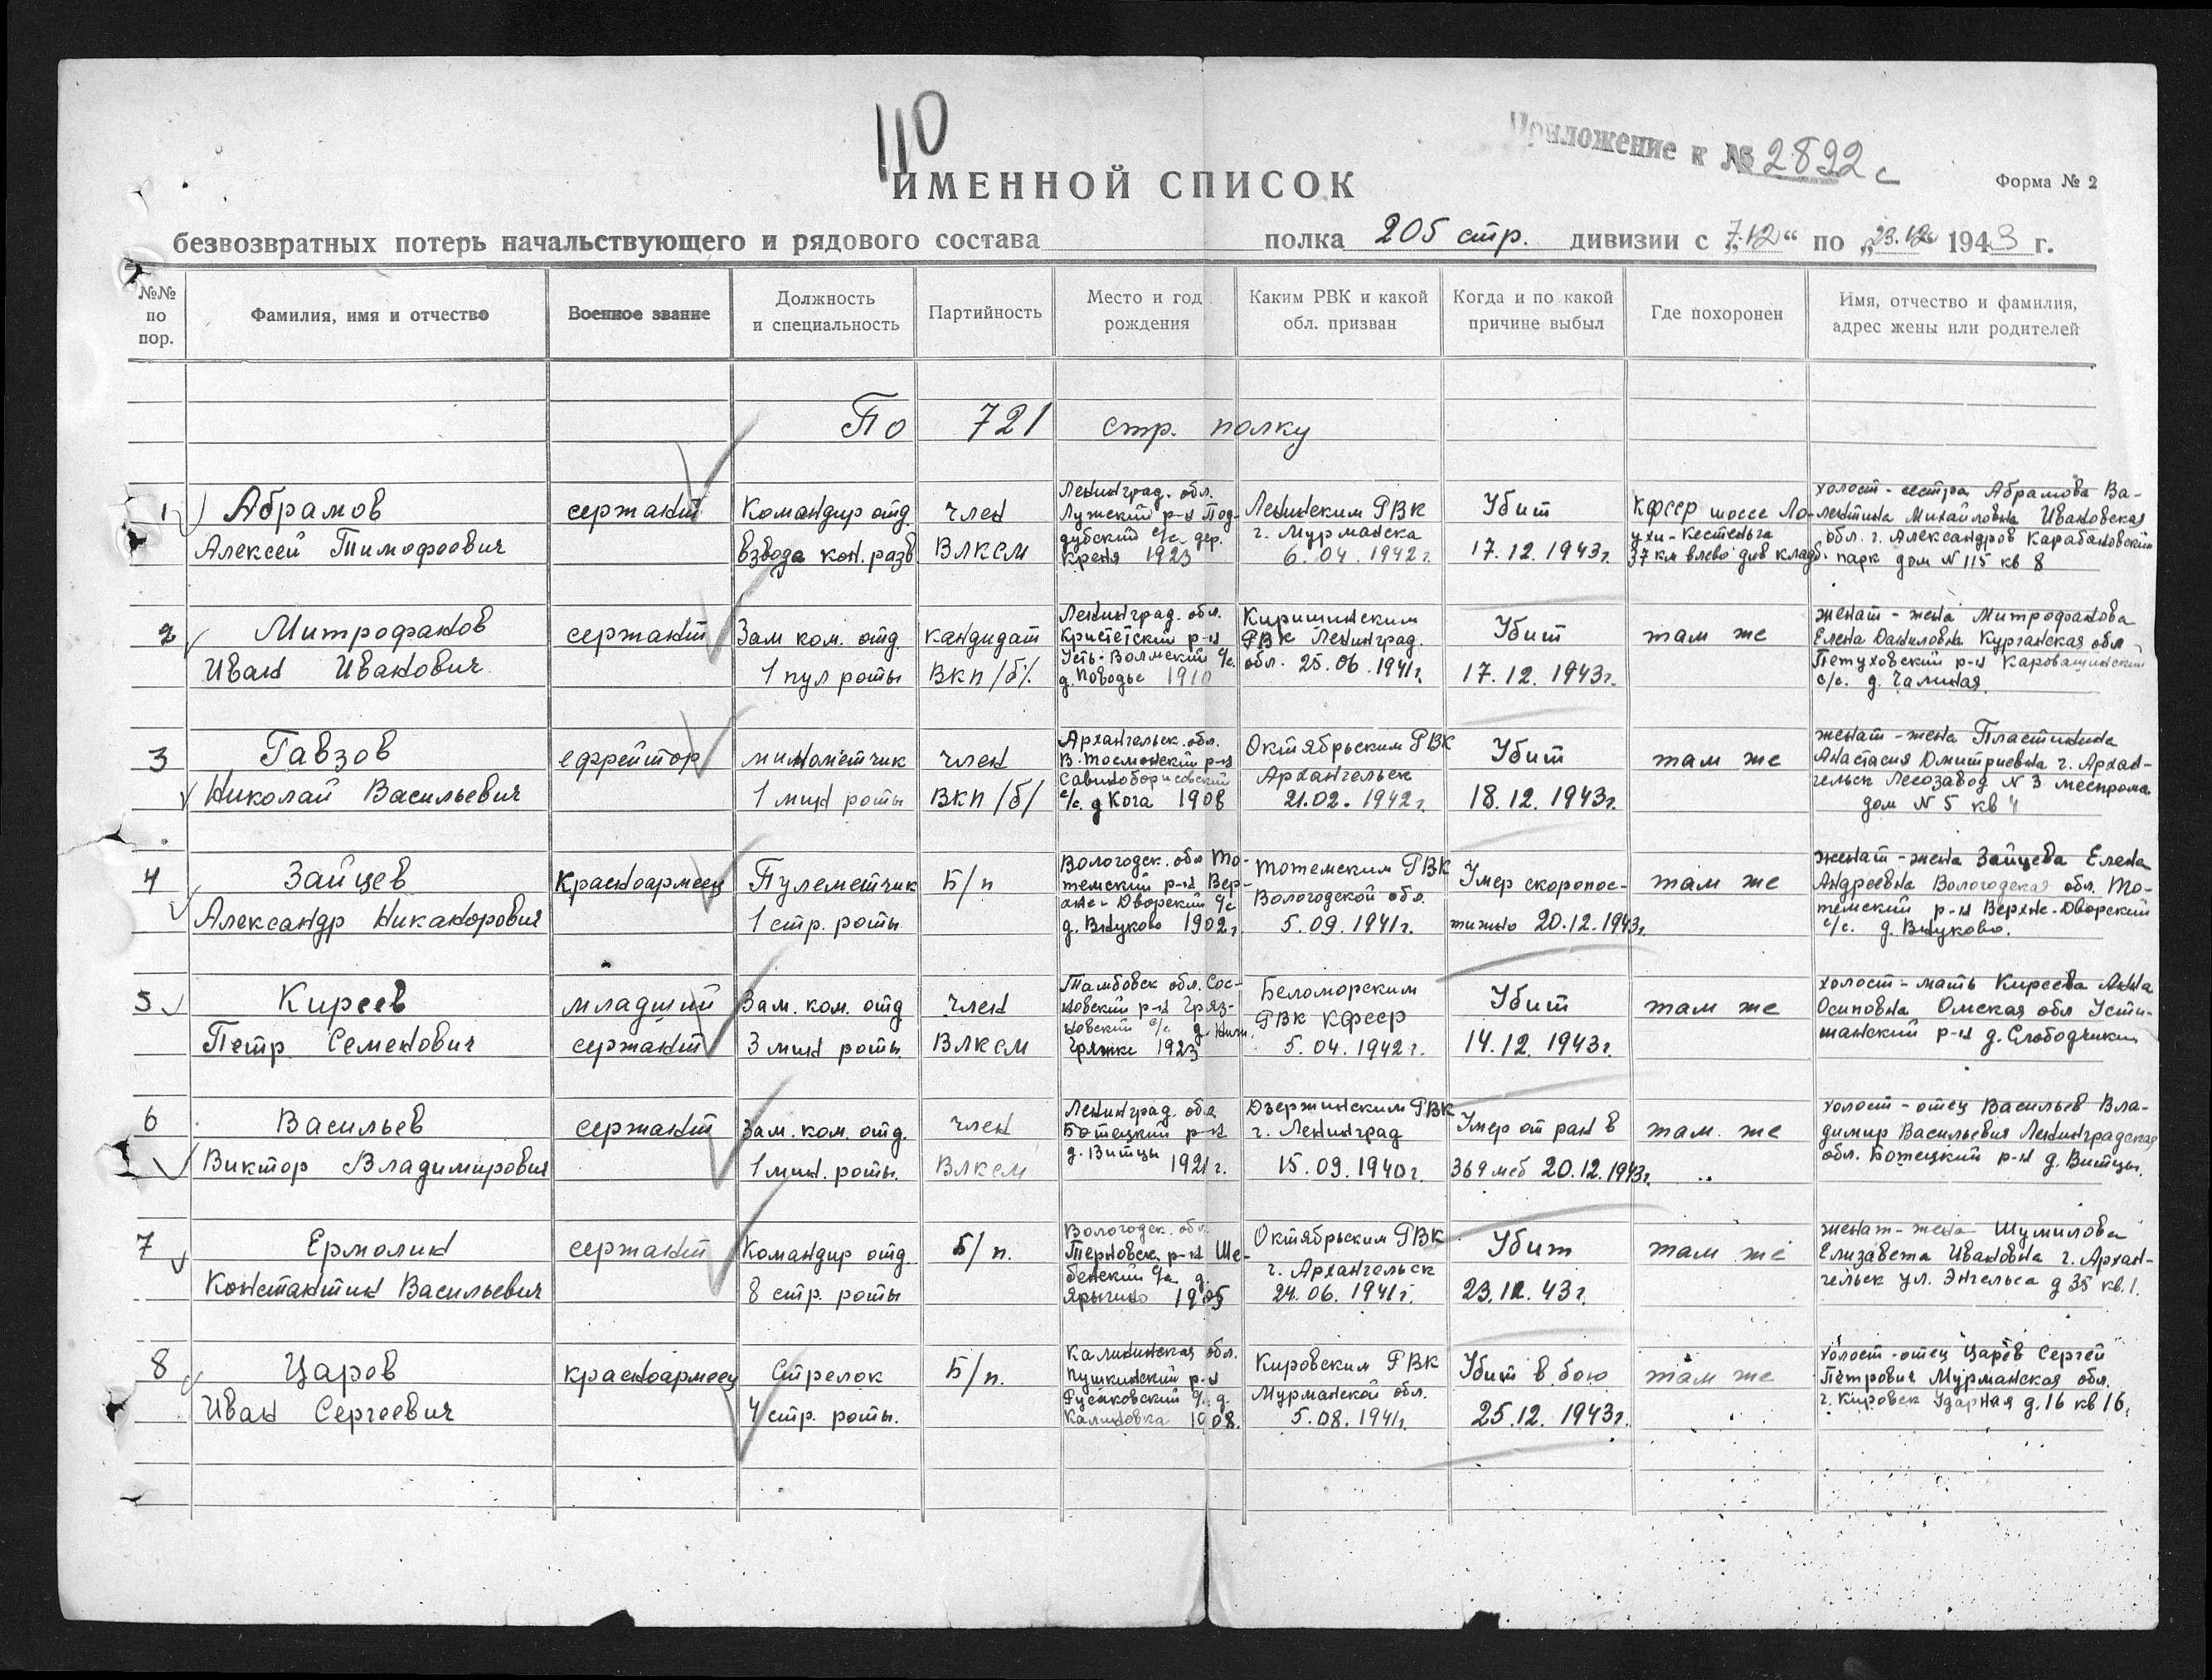 110
Приложение к № 2822 с
ИМЕННОЙ СПИСОК
Форма № 2
безвозвратных потерь начальствующего и рядового состава полка 205 стр. дивизии с „7.12“ по „23.12“ 1943 г.
№№ по пор.
Фамилия, имя и отчество
Военное звание
Должность и специальность
Партийность
Место и год рождения
Каким РВК и какой обл. призван
Когда и по какой причине выбыл
Где похоронен
Имя, отчество и фамилия, адрес жены или родителей
По 721 стр. полку
1
Абрамов
Алексей Тимофеевич
сержант
Командир отд.
взвода кон. разв.
член
ВЛКСМ
Ленинград. обл.
Лужский р-н Под-
дубский с/с. дер.
Креня 1923
Ленинским РВК
г. Мурманска
6.04.1942 г.
Убит
17.12.1943г.
КФССР шоссе Ло-
ухи-Кестеньга
37 км влево див клад.
холост - сестра Абрамова Ва-
лентина Михайловна Ивановская
обл. г. Александров Карабановский
парк дом N 115 кв 8
2
Митрофанов
Иван Иванович
сержант
Зам ком. отд.
1 пул роты
кандидат
ВКП/б/.
Ленинград. обл.
Крестецкий р-н
Усть-Волмский с/с.
д. Поводье 1910
Киришинским
РВК Ленинград.
обл. 25.06.1941г.
Убит
17.12.1943г.
там же
женат - жена Митрофанова
Елена Даниловна Курганская обл
Петуховский р-н
с/с. д.
3
Гавзов
Николай Васильевич
ефрейтор
минометчик
1 мин роты
член
ВКП/б/
Архангельск. обл.
В. Тоемский р-н
Савиноборисовский
с/с. д Кога 1908
Октябрьским РВК
Архангельск
21.02.1942г.
Убит
18.12.1943г.
там же
женат - жена Пластинина
Анастасия Дмитриевна г. Архан-
гельск Лесозавод N 3 меспрома
дом N 5 кв 4
4
Зайцев
Александр Никанорович
Красноармеец
Пулеметчик
1 стр. роты
Б/п
Вологодск. обл То-
темский р-н Вер-
хне-Дворский с/с
д. Внуково 1902г.
Тотемским РВК
Вологодской обл.
5.09.1941г.
Умер скоропос-
тижно 20.12.1943г.
там же
женат - жена Зайцева Елена
Андреевна Вологодская обл. То-
темский р-н Верхне-Дворский
с/с. д. Внуково.
5
Киреев
Петр Семенович
младший
сержант
Зам. ком. отд
3 мин роты
член
ВЛКСМ
Тамбовск обл. Сос-
новский р-н Гряз-
новский с/с. д. Ниж.
Грязное 1923
Беломорским
РВК КФССР
5.04.1942г.
Убит
14.12.1943г.
там же
холост - мать Киреева Анна
Осиповна Омская обл Усти-
шанский р-н д. Слободчики
6
Васильев
Виктор Владимирович
сержант
Зам. ком. отд.
1 мин. роты.
член
ВЛКСМ
Ленинград. обл
Ботецкий р-н
д. Витцы 1921г.
Дзержинским РВК
г. Ленинград
15.09.1940г.
Умер от ран в
369 меб 20.12.1943г.
там же
холост - отец Васильев Вла-
димир Васильевич Ленинградская
обл. Ботецкий р-н д. Витцы.
7
Ермолин
Константин Васильевич
сержант
Командир отд.
8 стр. роты
Б/п.
Вологодск. обл.
р-н Ше-
бенский с/с д.
Ярыгино 1905
Октябрьским РВК
г. Архангельск
24.06.1941г.
Убит
23.12.43г.
там же
женат - жена Шумилова
Елизавета Ивановна г. Архан-
гельск ул. Энгельса д 35 кв.1.
8
Царев
Иван Сергеевич
красноармеец
Стрелок
4 стр. роты.
Б/п.
Калининская обл.
Пушкинский р-н
Русаковский с/с. д.
Калиновка 1908.
Кировским РВК
Мурманской обл.
5.08.1941г.
Убит в бою
25.12.1943г.
там же
холост - отец Царев Сергей
Петрович Мурманская обл.
г. Кировск Ударная д. 16 кв 16.